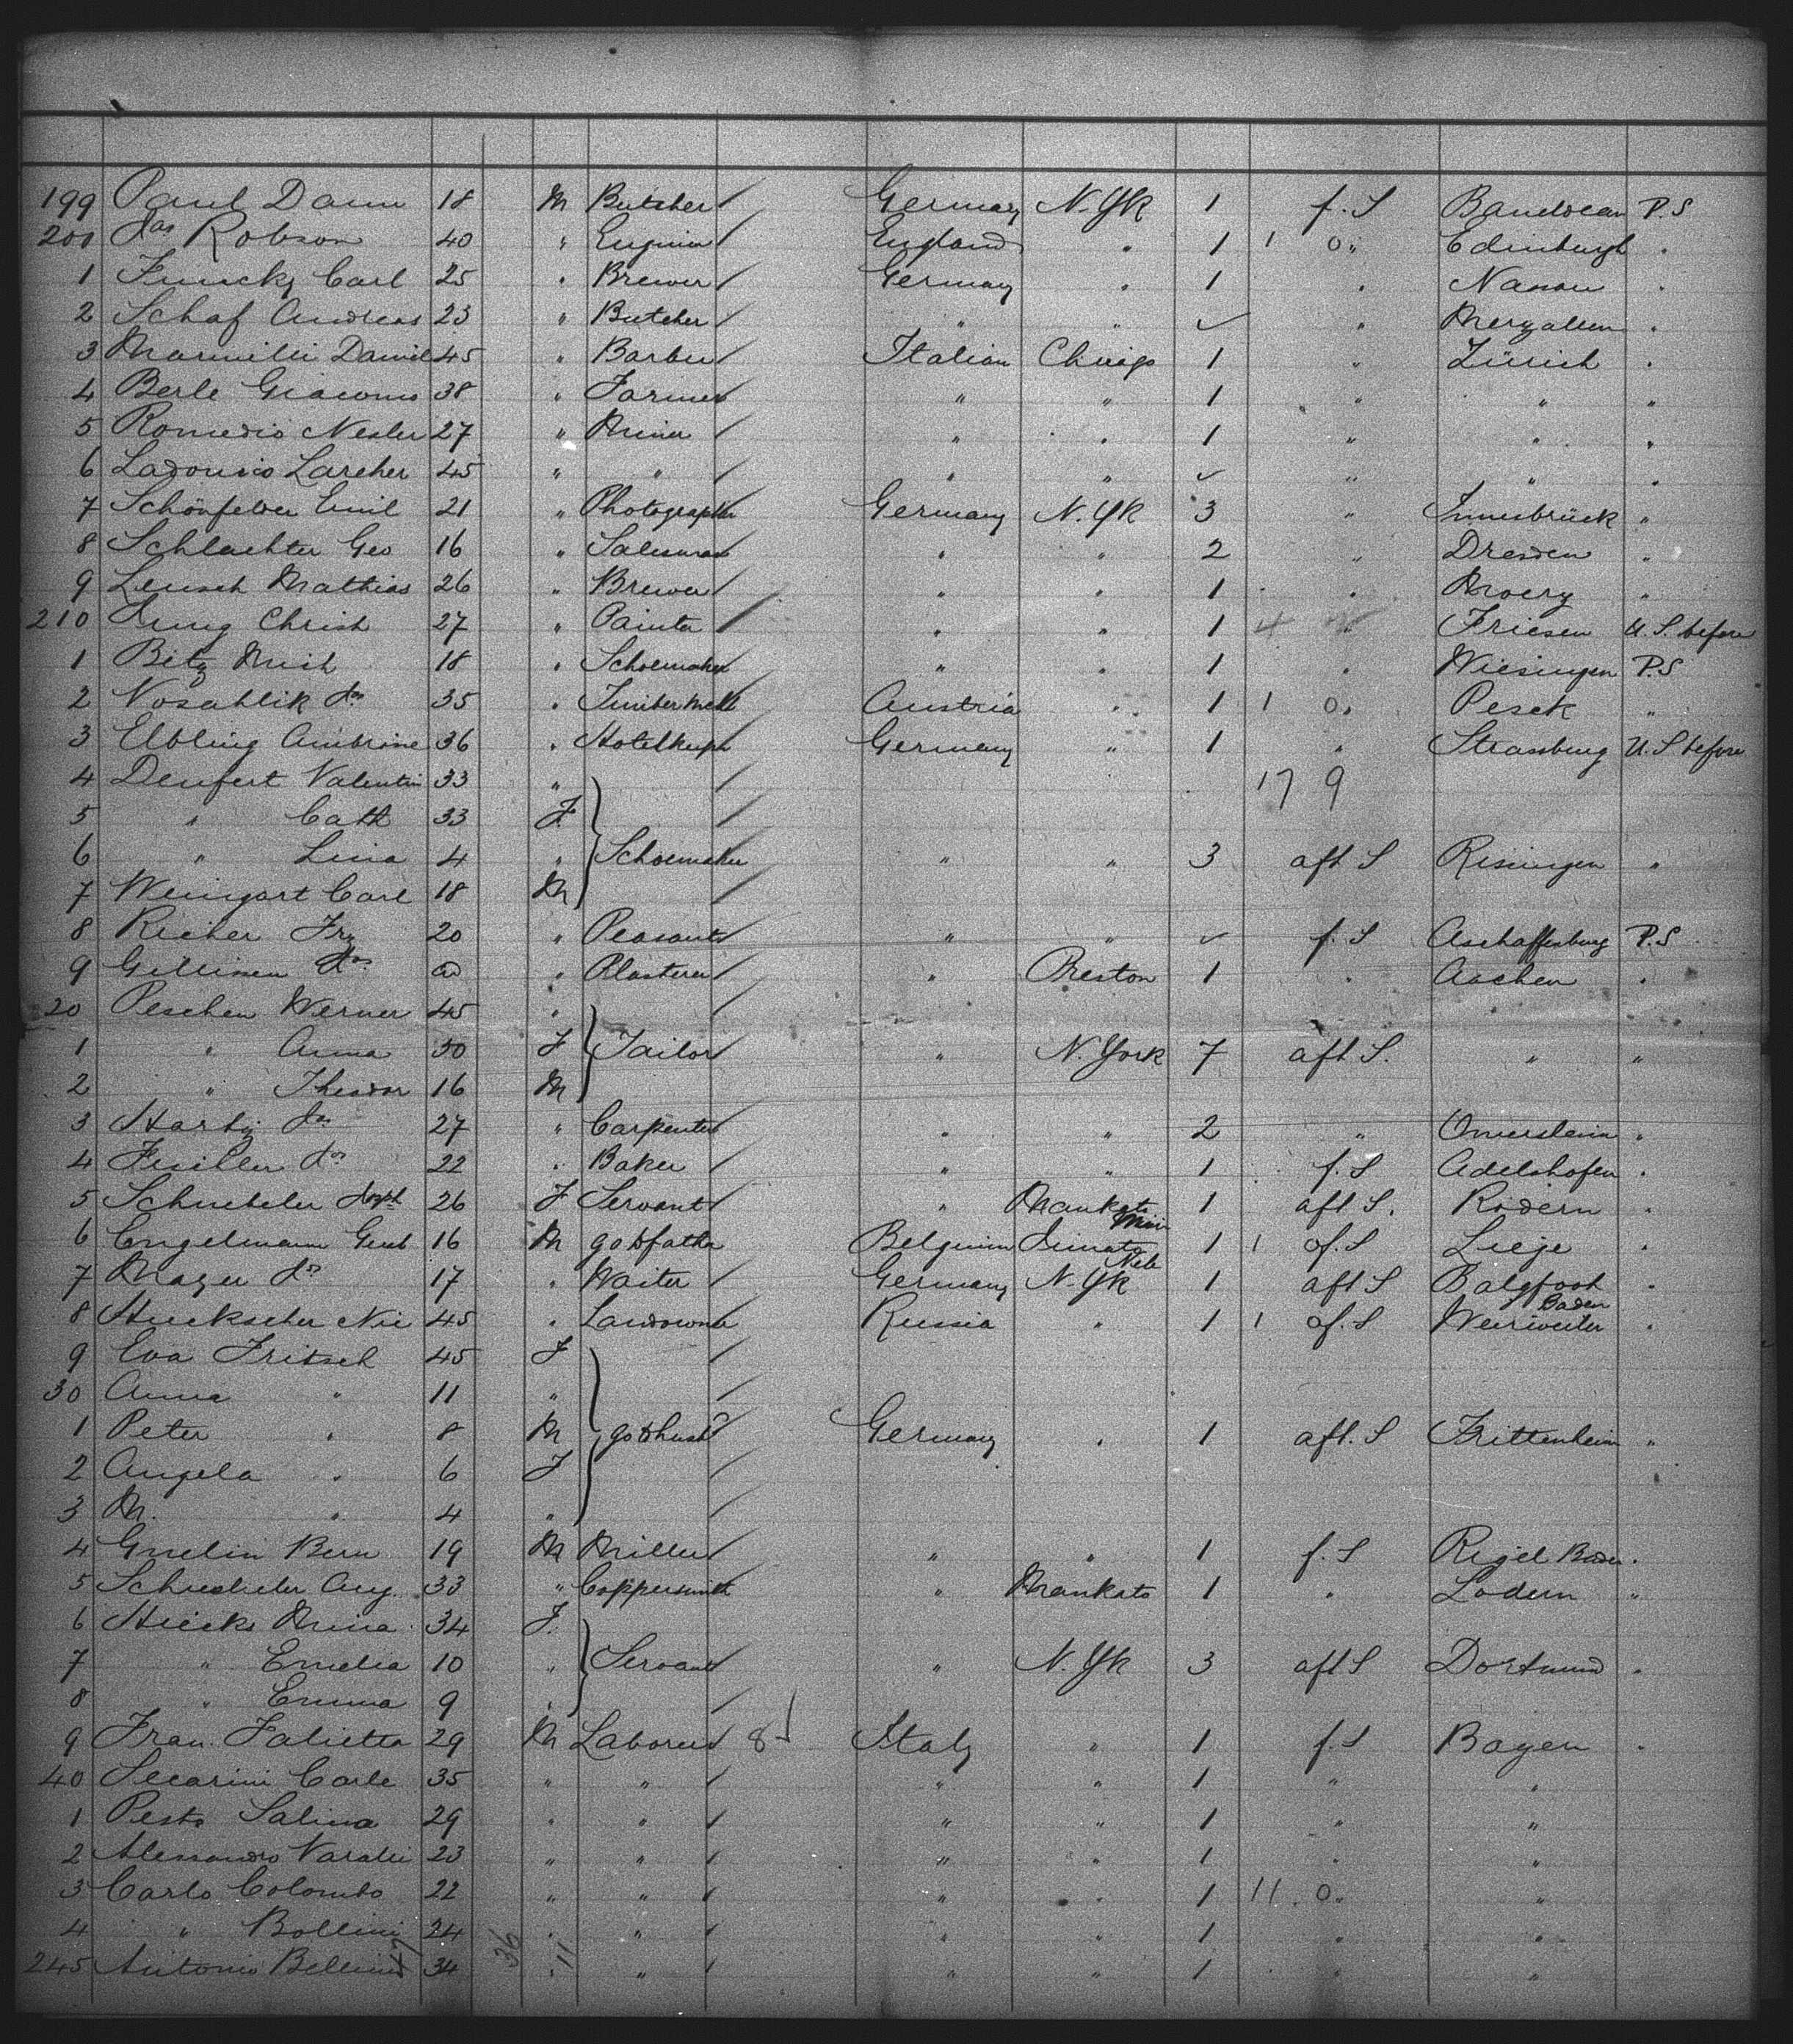 199 Paul Dann 18 M Butcher Germany N.Yk 1 f. S P.S
200 Jas Robson 40 " England " 1 1 0 " Edinburgh "
1 Carl 25 " Brewer Germany " 1 " Nassau "
2 Schaf Andreas 23 " Butcher " " ✓ " "
3 Daniel 45 " Barber Italian Chicago 1 " Zürich "
4 Berle Giacomo 38 " Farmer " " 1 " " "
5 Romedio Nesler 27 " Miner " " 1 " " "
6 Larcher 45 " " " " ✓ " " "
7 Schönfelder Emil 21 " Photographer Germany N.Yk 3 " Innesbrück "
8 Schlachter Geo 16 " Salesman " " 2 " Dresden "
9 Leusch Mathias 26 " Brewer " " 1 " "
210 Jung Christ 27 " Painter " " 1 4 " Friesen U.S. before
1 Bitz Mich 18 " Schoemaker " " 1 " Wiesingen P.S
2 Vosahlik Jos 35 " Austria " 1 1 0 " Pesek "
3 Elbling Ambrine 36 " Hotelkeeper Germany " 1 " Strassburg U.S before
4 Denfert Valentin 33 " 17 9
5 " Cath 33 F.
6 " Lina 4 " Schoemaker " " 3 aft S Risingen "
7 Weingart Carl 18 M
8 Richer Frz 20 " Peasant " " ✓ f. S Aschaffenburg P.S
9 Gillissen Jos " Plasterer " Preston 1 " Aachen "
20 Peschen Werner 45 "
1 " Anna 50 F Tailor " N. York 7 aft S. " "
2 " Theodor 16 M
3 Jos 27 " Carpenter " " 2 " "
4 Jos 22 " Baker " " 1 f. S Adelshofen "
5 Schuebeler Joseph 26 F Servant " Mankato Min 1 aft S. Rödern "
6 Engelmann Gust 16 M go to father Belgium Neb 1 1 of. S Liege "
7 Mager Js 17 " Waiter Germany N.Yk 1 aft S "
8 Nic 45 " Landowner Russia " 1 1 of. S Baden "
9 Eva Fritsch 45 F
30 Anna " 11 "
1 Peter " 8 M go to husb Germany " 1 aft. S Trittenheim "
2 Angela " 6 F
3 M. " 4 "
4 Gmelin Bern 19 M Miller " " 1 f. S Rigel Baden "
5 Aug. 33 " Coppersmith " Mankato 1 " Lodern "
6 Hiecks Mina 34 F.
7 " Emelia 10 " Servant " N.Yk 3 aft S Dortmund "
8 " Emma 9 "
9 Fran. Falietta 29 M Laborer 8 Italy " 1 f. S Bagen "
40 Secarini Carlo 35 " " " " 1 " "
1 Pesto Salina 29 " " " " 1 " "
2 Alessandro Varalli 23 " " " " 1 " "
3 Carlo Colombo 22 " " " " 1 11 0 " "
4 " Bollini 24 " " " " 1 " "
245 Antonio Bellini 34 36 " 11 " " " 1 " "